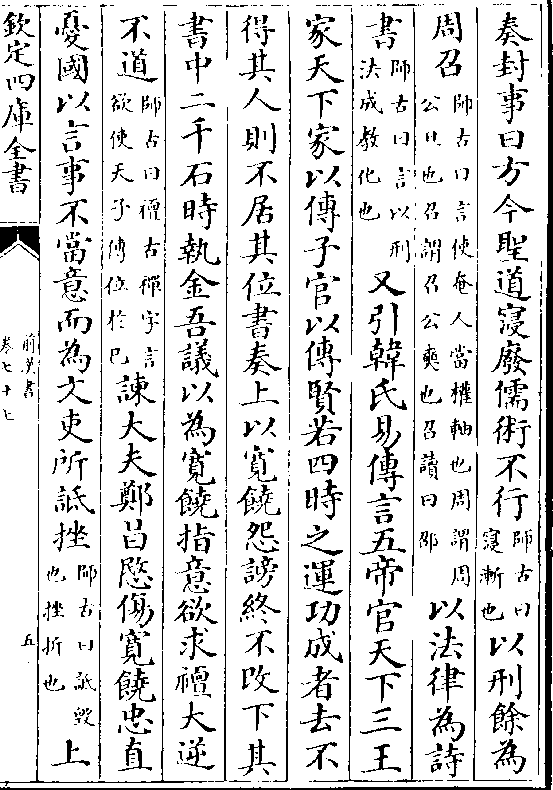 奏封事曰方今聖道寖廢儒術不行師古曰寖漸也以刑餘為
周召師古曰言使奄人當權軸也周謂周公旦也召謂召公奭也召讀曰邵以法律為詩
書師古曰言以刑法成教化也又引韓氏易傳言五帝官天下三王
家天下家以傳子官以傳賢若四時之運功成者去不
得其人則不居其位書奏上以寬饒怨謗終不改下其
書中二千石時執金吾議以為寬饒指意欲求禪大逆
不道師古曰禪古禪字言欲使天子傳位於已諫大夫鄭昌愍傷寬饒忠直
憂國以言事不當意而為文吏所詆挫師古曰詆毀也挫折也上
欽定四庫全書
前漢書
卷七十七
五